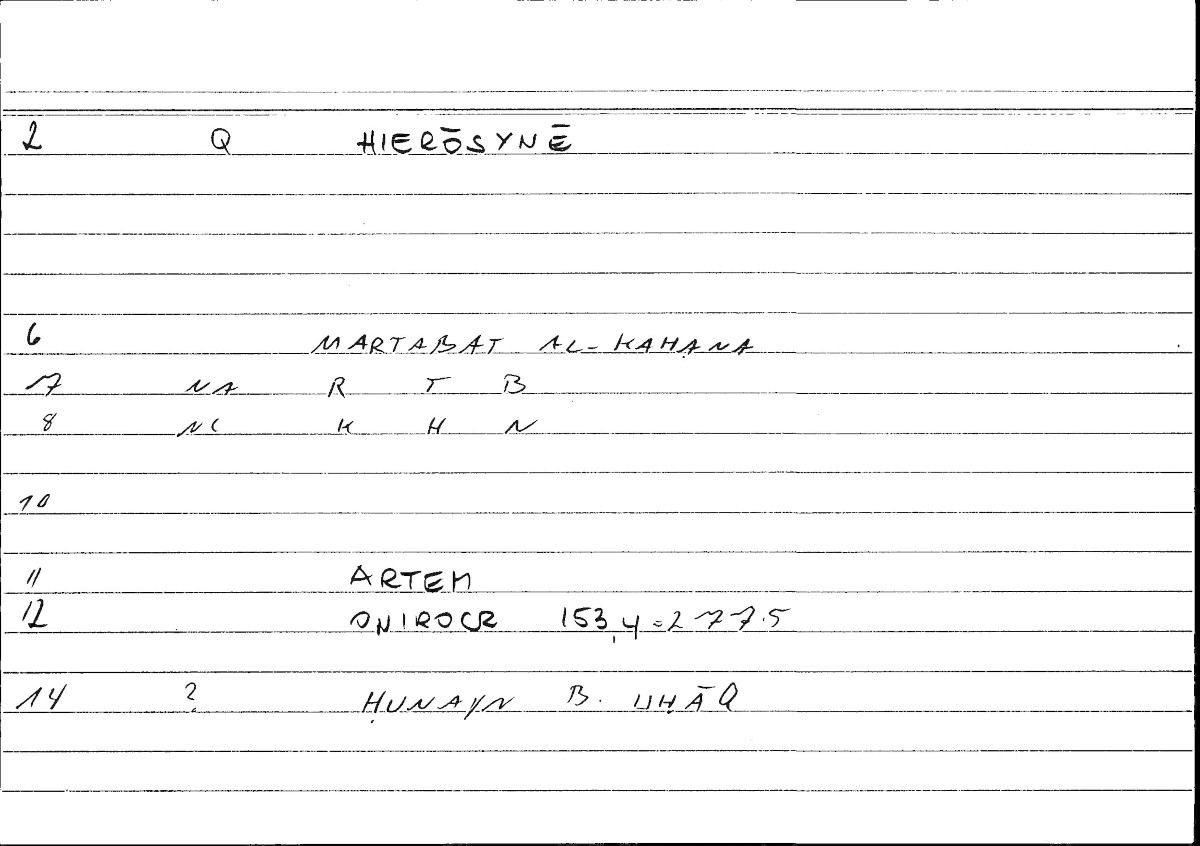 2 Q HIERŌSYNĒ
6 MARTABAT AL-KAHANA
7 NA R T B
8 NC K H N
10
11 ARTEM
12 ONIROCR 153,4=277.5
14 ? ḤUNAYN B. ISḤĀQ